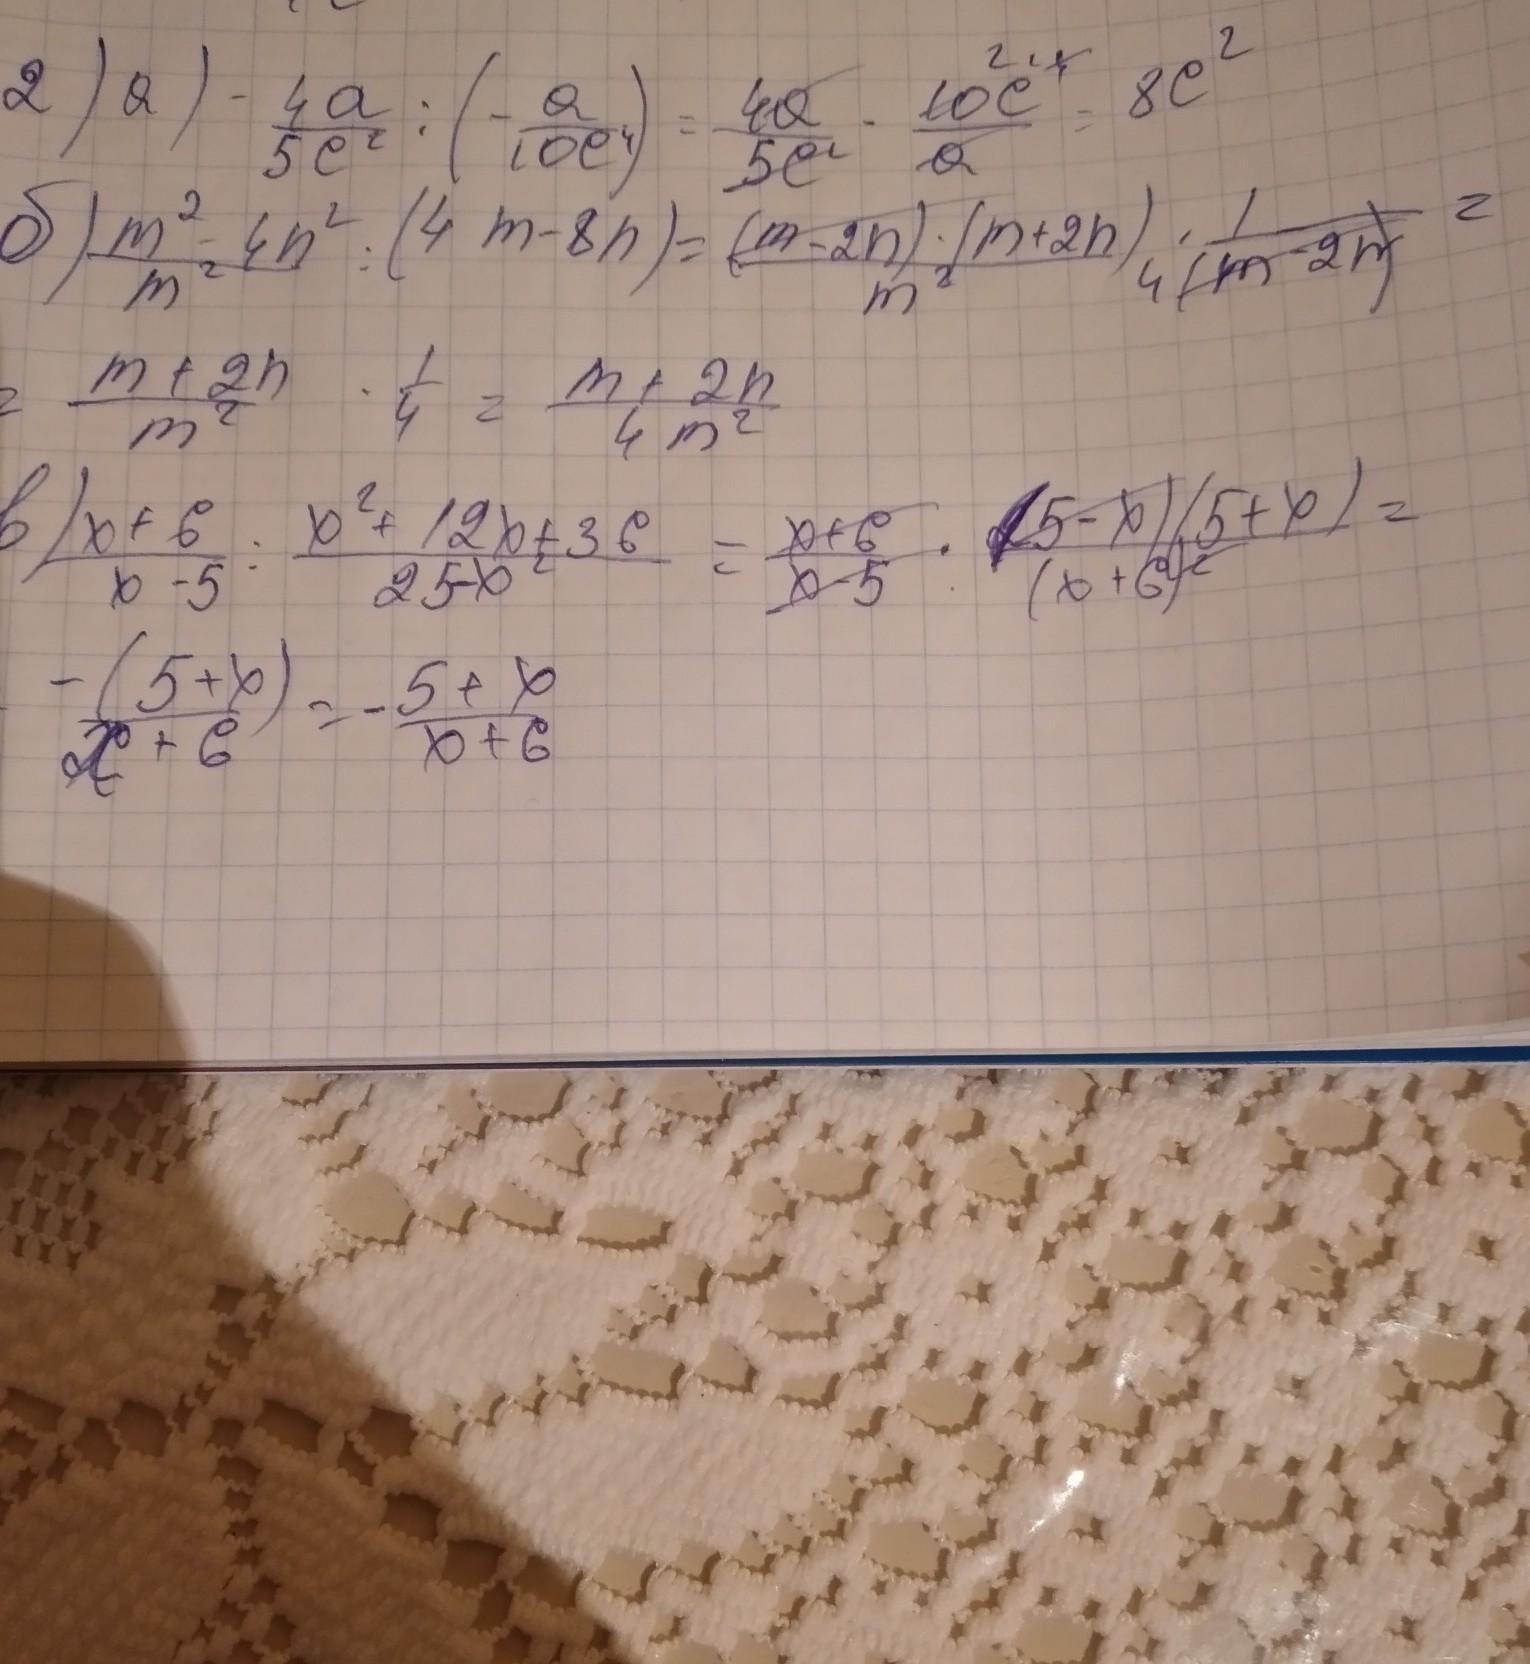 2) а) - 4a/5c² : (- a/10c⁴) = 4a/5c² · 10c⁴/a = 8c²
б) m² - 4n²/m² : (4m - 8n) = (m - 2n) · (m + 2n)/m² · 1/4(m - 2n) =
= m + 2n/m² · 1/4 = m + 2n/4m²
в) x + 6/x - 5 : x² + 12x + 36/25 - x² = x + 6/x - 5 · (5 - x)(5 + x)/(x + 6)² =
- (5 + x)/x + 6 = - 5 + x/x + 6